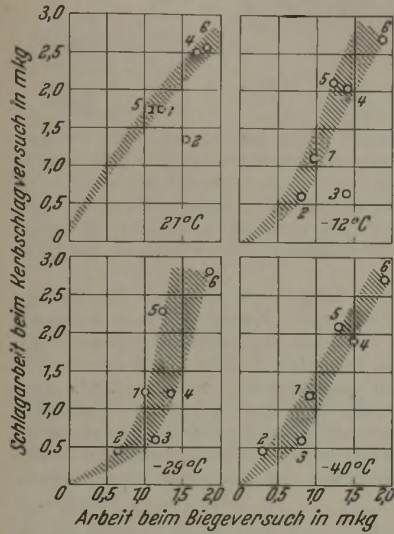 Schlagarbeit beim Kerbschlagversuch in mkg
3,0
2,5
2,0
1,5
1,0
0,5
0
4
6
5
1
2
21°C
6
5
4
1
2
3
-12°C
3,0
2,5
2,0
1,5
1,0
0,5
0
0,5
1,0
1,5
2,0
6
5
1
4
2
3
-29°C
0
0,5
1,0
1,5
2,0
6
5
4
1
2
3
-40°C
Arbeit beim Biegeversuch in mkg